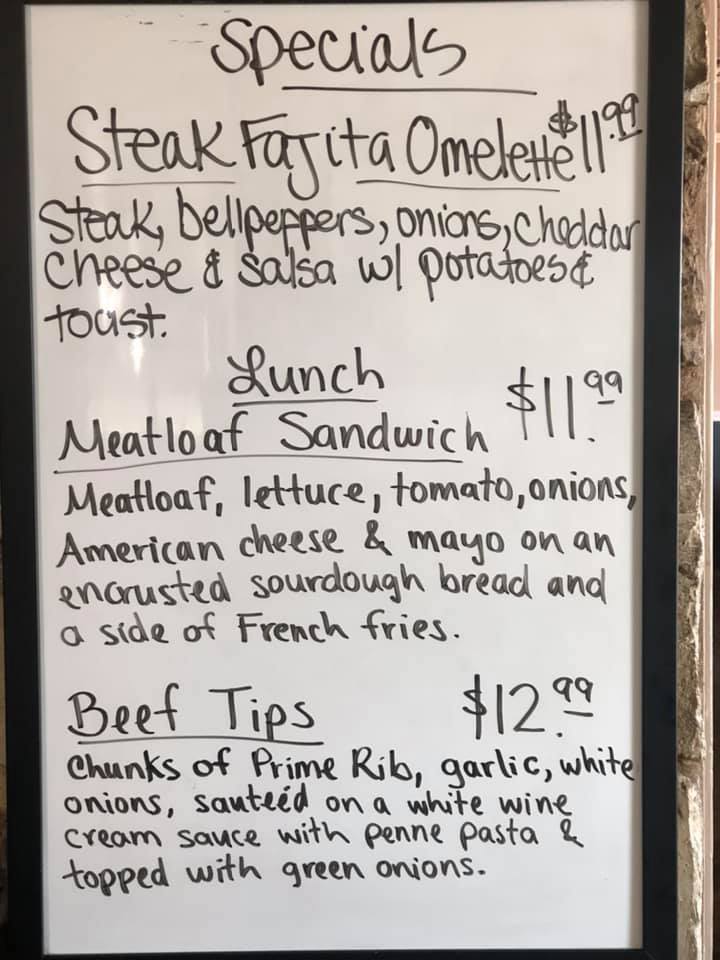 Specials
Steak Fajita Omelette $11.99
Steak, bellpeppers, onions, cheddar
cheese & salsa w/ potatoes &
toast.
Lunch
Meatloaf Sandwich $11.99
Meatloaf, lettuce, tomato, onions,
American cheese & mayo on an
encrusted sourdough bread and
a side of French fries.
Beef Tips $12.99
Chunks of Prime Rib, garlic, white
onions, sauteéd on a white wine
cream sauce with penne pasta &
topped with green onions.